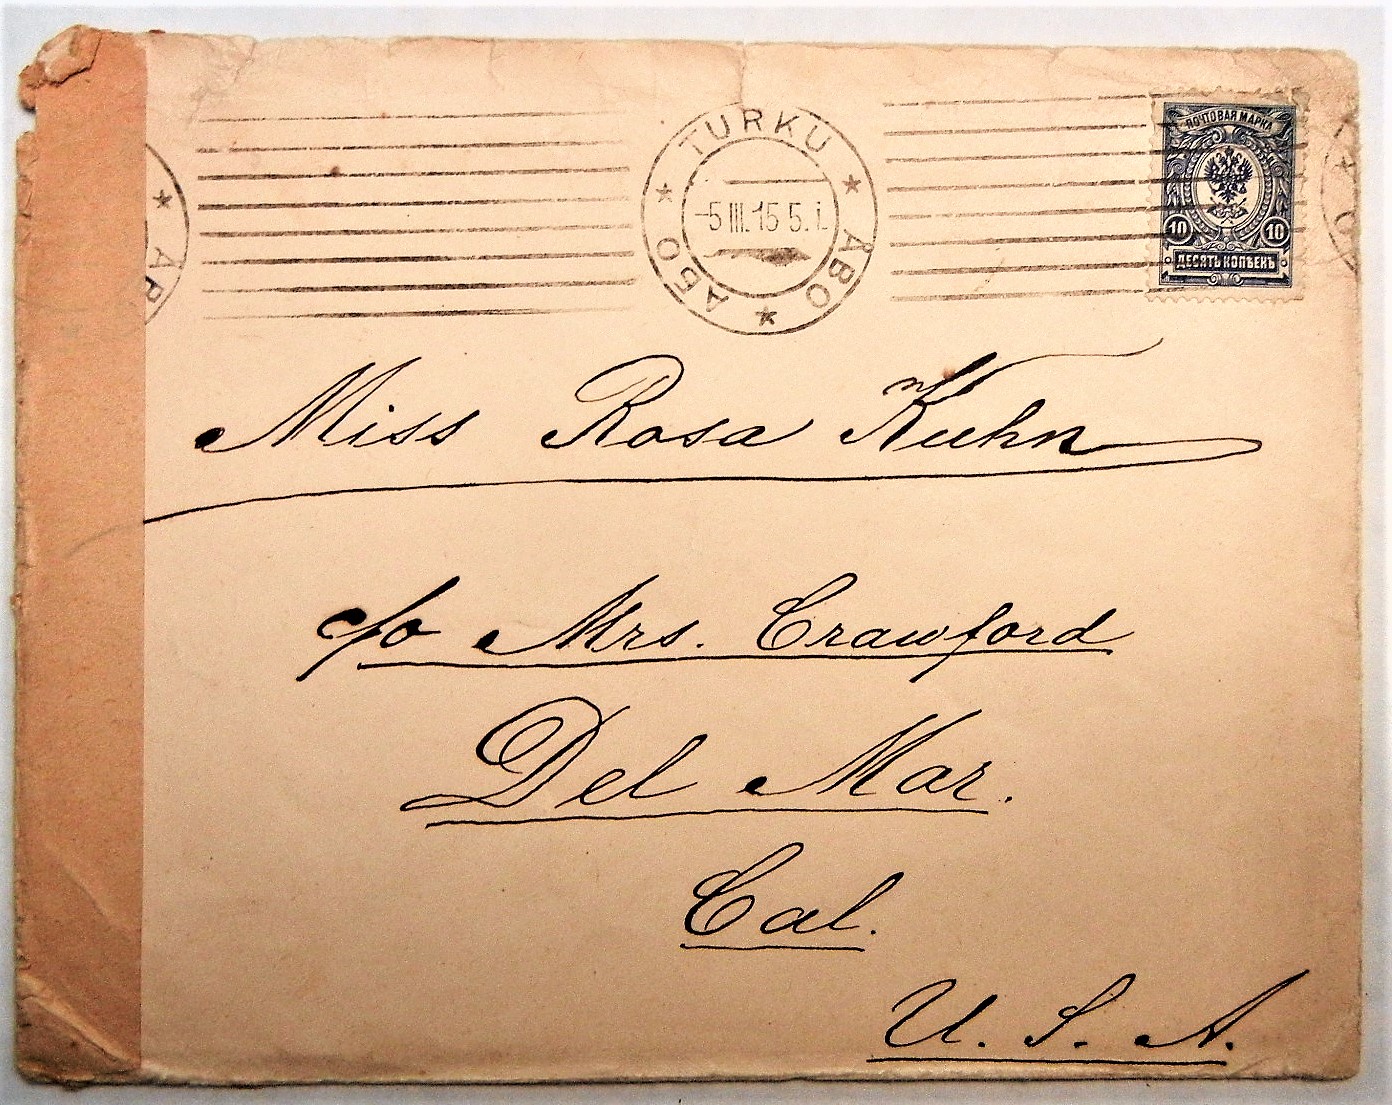 TURKU
ÅBO
АБО
-5 III.15 5. i.
ÅB
ПОЧТОВАЯ МАРКА
10 10
ДЕСЯТЬ КОПѢЕКЪ
Miss Rosa Kuhn
c/o Mrs. Crawford
Del Mar.
Cal.
U. S. A.